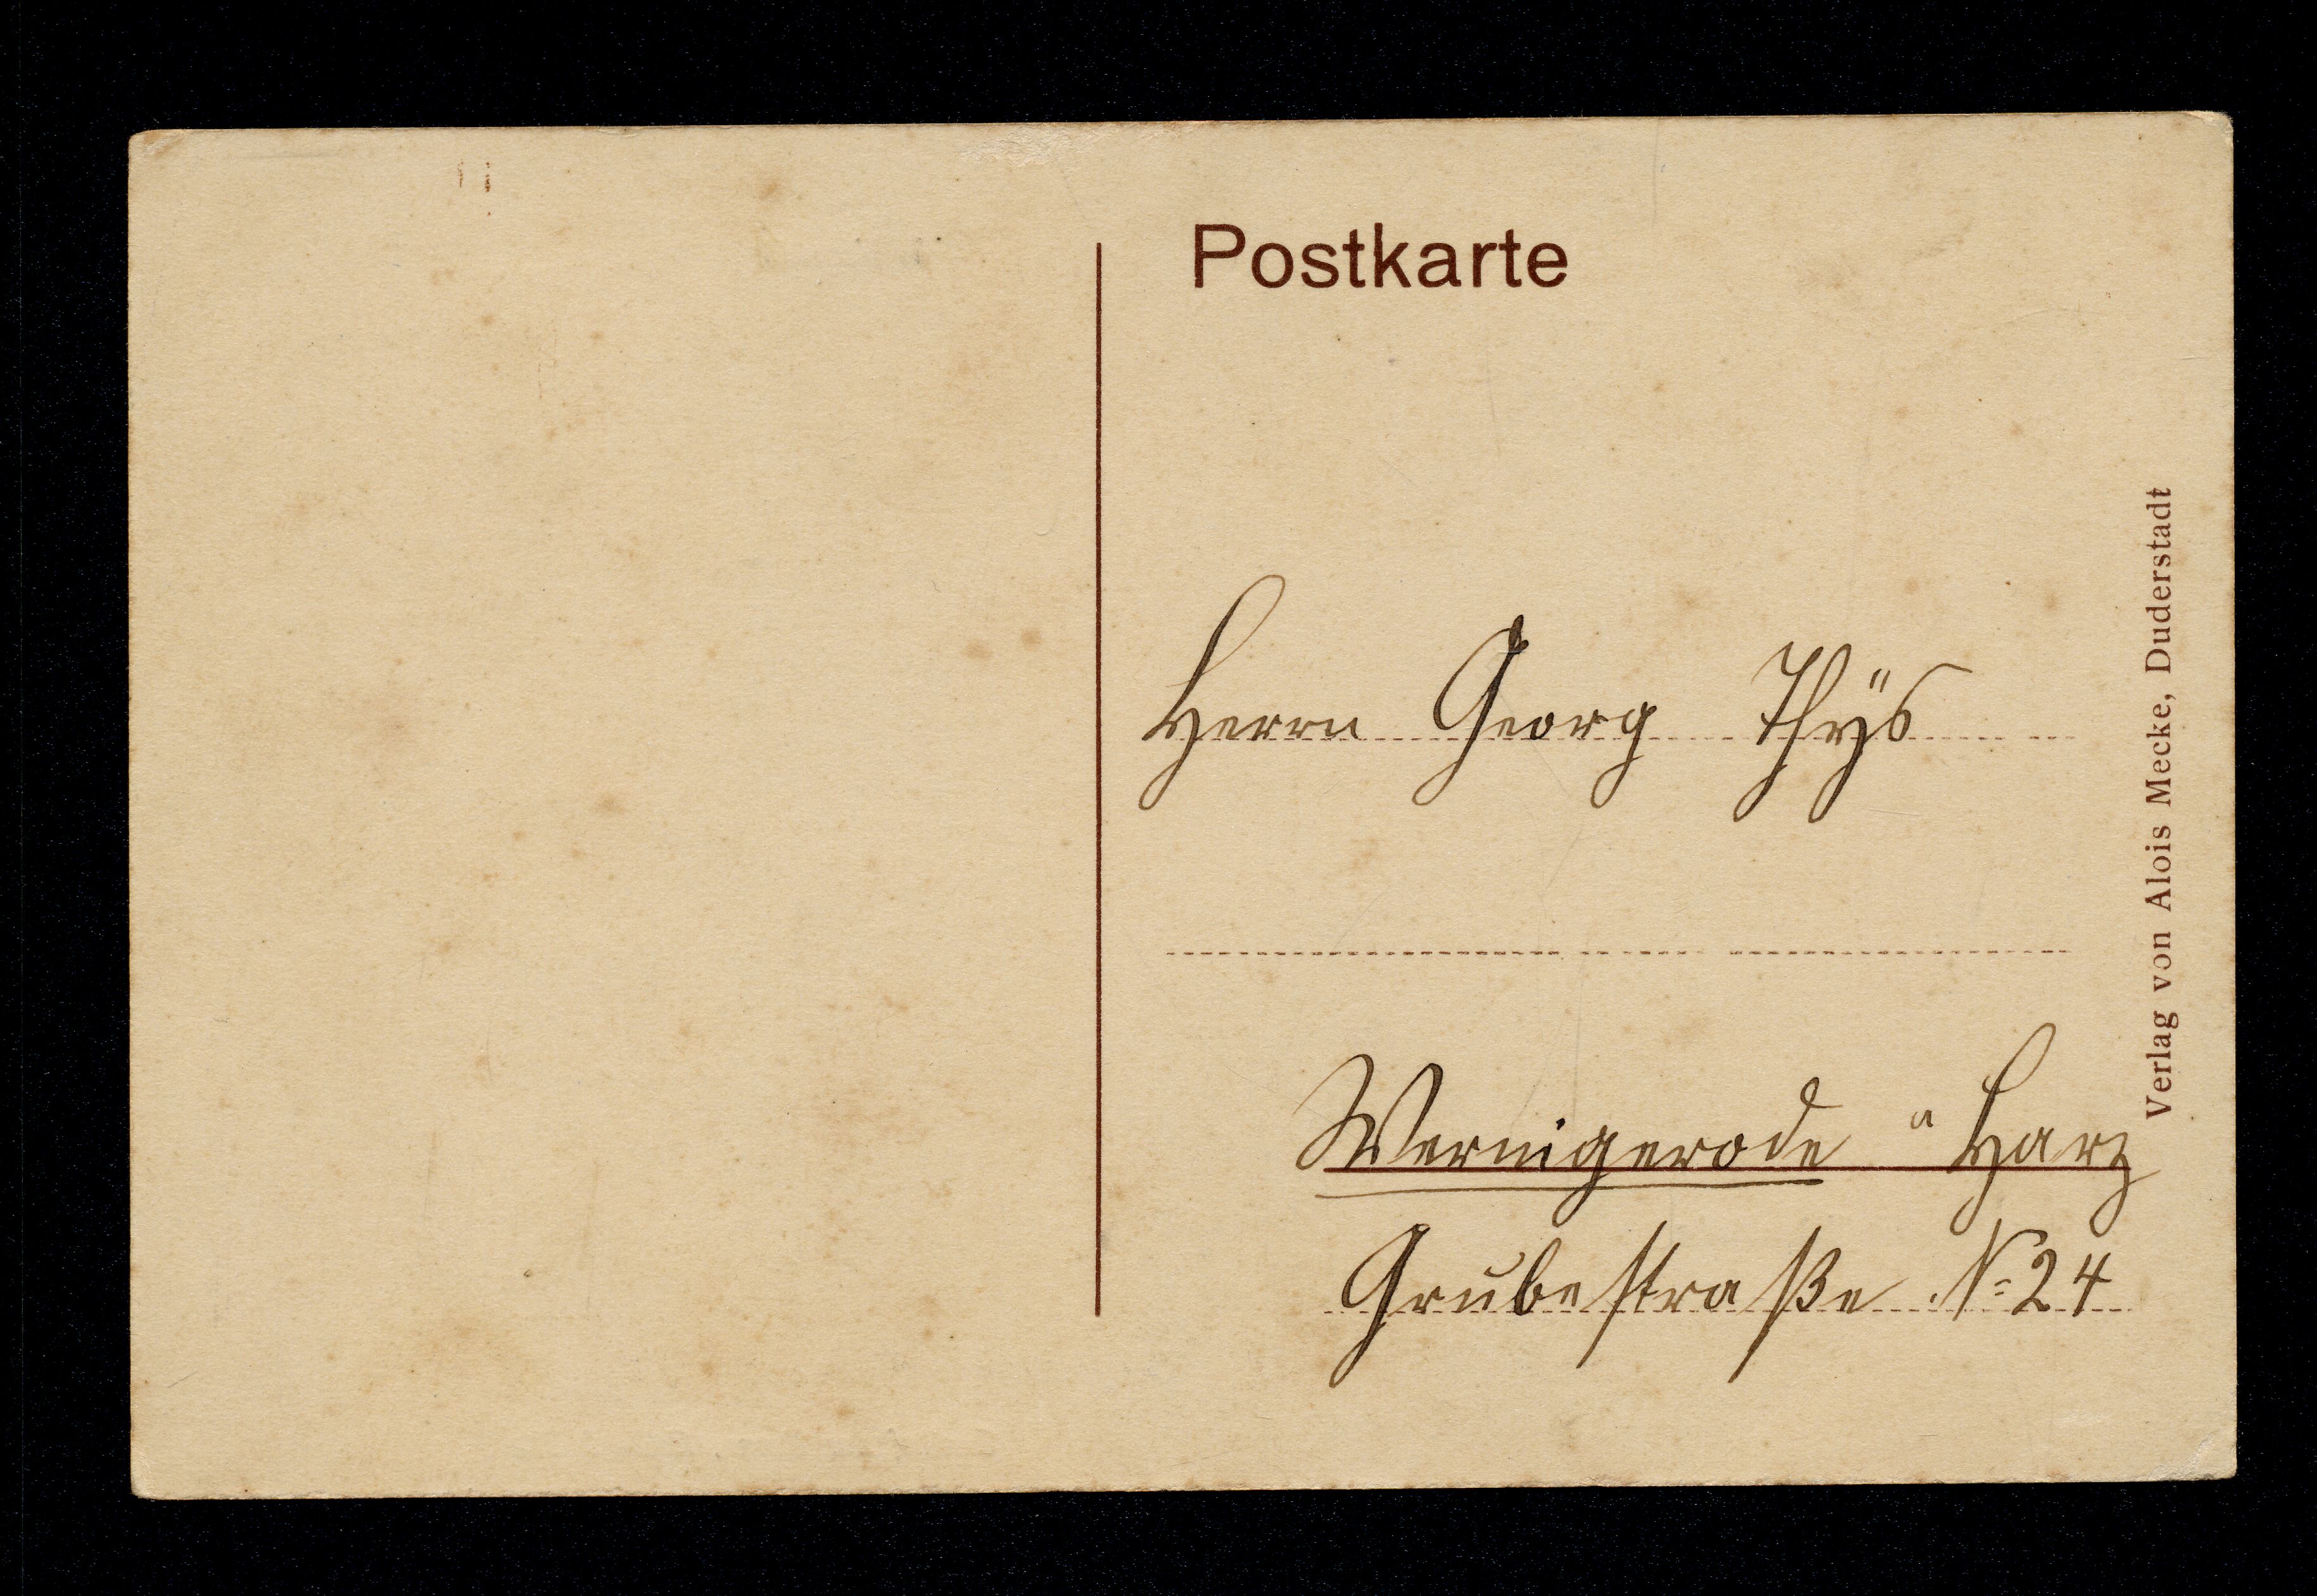 Postkarte
Herrn Georg Thÿs
Wernigerode a Harz
Grubestraße № 24
Verlag von Alois Mecke, Duderstadt